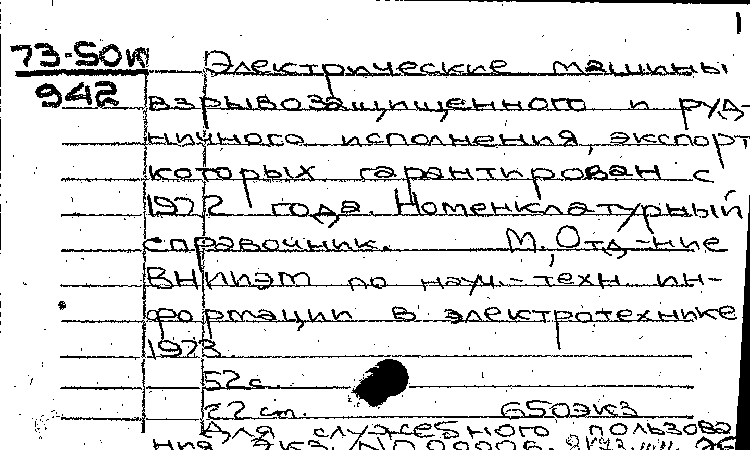 1
73-50к
942
Электрические машины
взрывозащищенного и руд-
ничного исполнения, экспорт
которых гарантирован с
1972 года. Номенклатурный
справочник. М., Отд-ние
ВНИИЭМ по науч.-техн. ин-
формации в электротехнике
1973
52 с.
22 cm. 650экз
Для служебного пользова
ния экз. №00006.